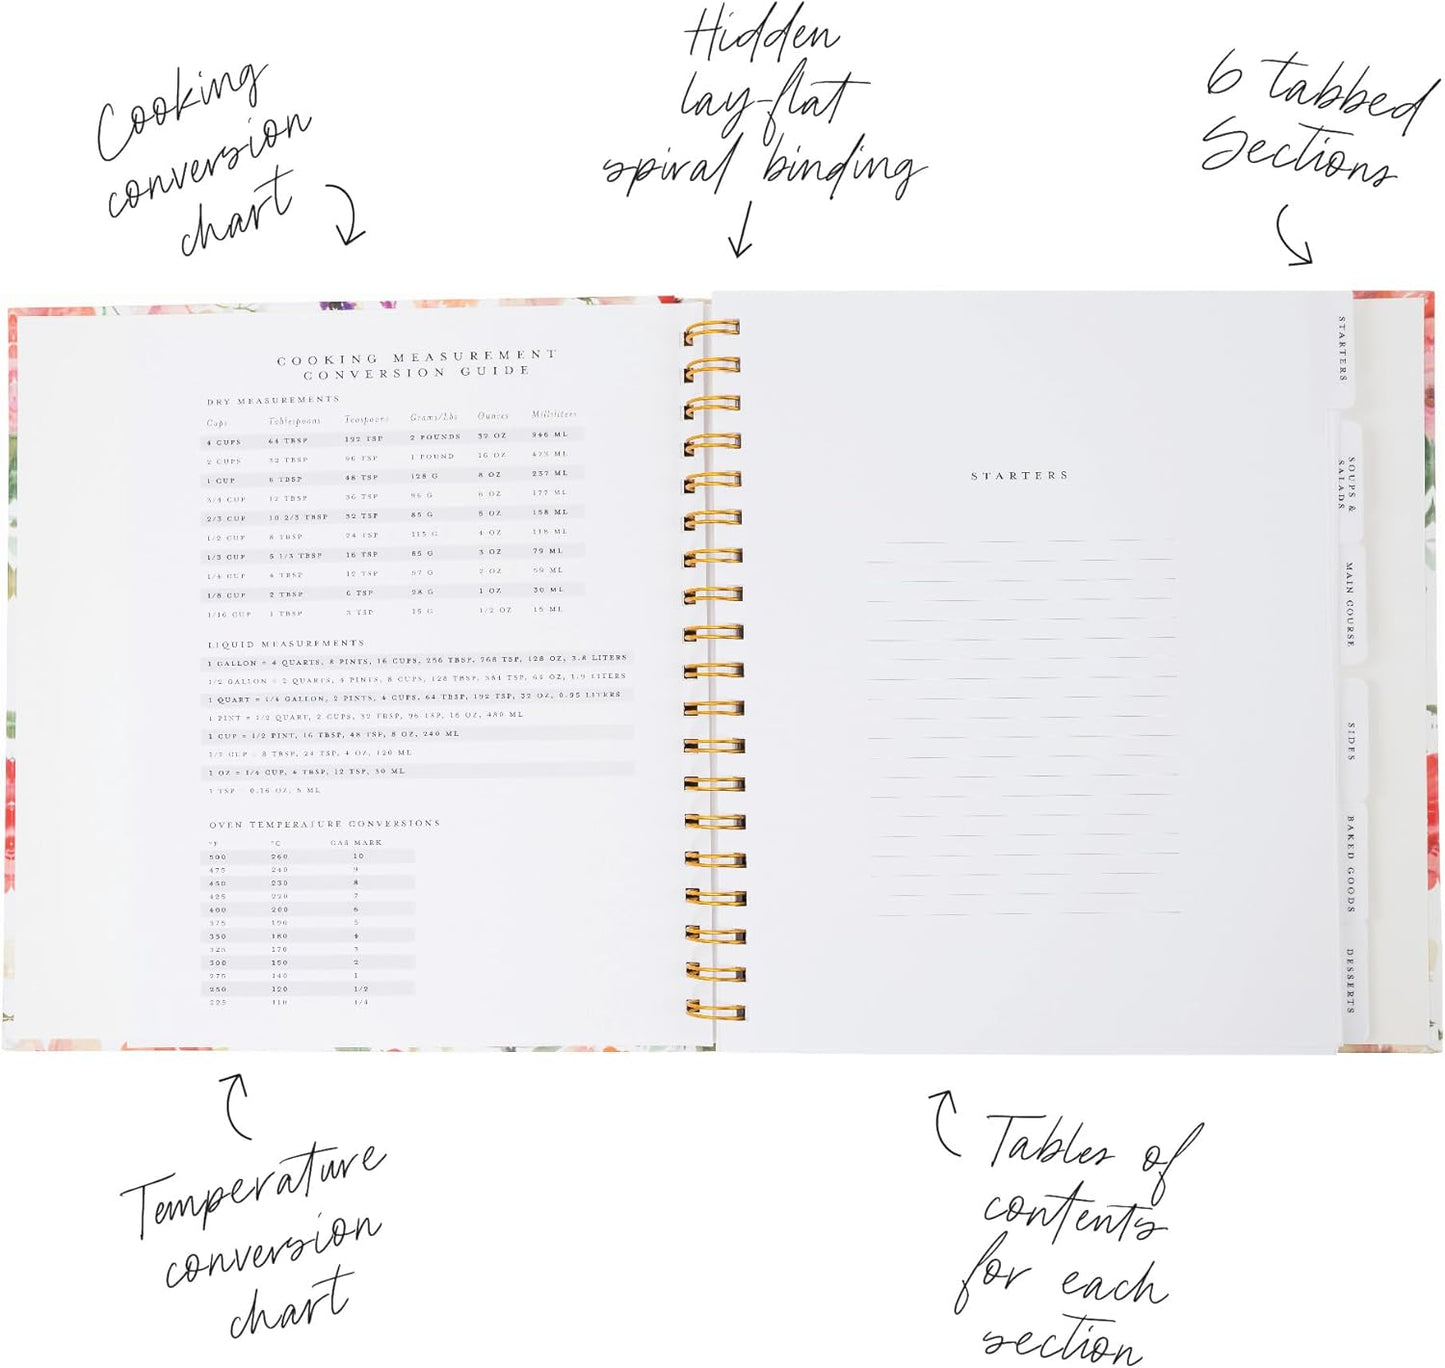 Cooking
conversion
chart
Hidden
lay-flat
spiral binding
6 tabbed
Sections
COOKING MEASUREMENT
CONVERSION GUIDE
DRY MEASUREMENTS
Cups Tablespoons Teaspoons Grams/Lbs Ounces Milliliters
4 CUPS 64 TBSP 192 TSP 2 POUNDS 32 OZ 946 ML
2 CUPS 32 TBSP 96 TSP 1 POUND 16 OZ 473 ML
1 CUP 6 TBSP 48 TSP 128 G 8 OZ 237 ML
3/4 CUP 12 TBSP 36 TSP 96 G 6 OZ 177 ML
2/3 CUP 10 2/3 TBSP 32 TSP 85 G 5 OZ 158 ML
1/2 CUP 8 TBSP 24 TSP 115 G 4 OZ 118 ML
1/3 CUP 5 1/3 TBSP 16 TSP 85 G 3 OZ 79 ML
1/4 CUP 4 TBSP 12 TSP 57 G 2 OZ 59 ML
1/8 CUP 2 TBSP 6 TSP 28 G 1 OZ 30 ML
1/16 CUP 1 TBSP 3 TSP 15 G 1/2 OZ 15 ML
LIQUID MEASUREMENTS
1 GALLON = 4 QUARTS, 8 PINTS, 16 CUPS, 256 TBSP, 768 TSP, 128 OZ, 3.8 LITERS
1/2 GALLON = 2 QUARTS, 4 PINTS, 8 CUPS, 128 TBSP, 384 TSP, 64 OZ, 1.9 LITERS
1 QUART = 1/4 GALLON, 2 PINTS, 4 CUPS, 64 TBSP, 192 TSP, 32 OZ, 0.95 LITERS
1 PINT = 1/2 QUART, 2 CUPS, 32 TBSP, 96 TSP, 16 OZ, 480 ML
1 CUP = 1/2 PINT, 16 TBSP, 48 TSP, 8 OZ, 240 ML
1/2 CUP = 8 TBSP, 24 TSP, 4 OZ, 120 ML
1 OZ = 1/4 CUP, 4 TBSP, 12 TSP, 30 ML
1 TSP = 0.16 OZ, 5 ML
OVEN TEMPERATURE CONVERSIONS
°F °C GAS MARK
500 260 10
475 240 9
450 230 8
425 220 7
400 200 6
375 190 5
350 180 4
325 170 3
300 150 2
275 140 1
250 120 1/2
225 110 1/4
STARTERS
STARTERS
SOUPS &
SALADS
MAIN COURSE
SIDES
BAKED GOODS
DESSERTS
Temperature
conversion
chart
Tables of
contents
for each
section